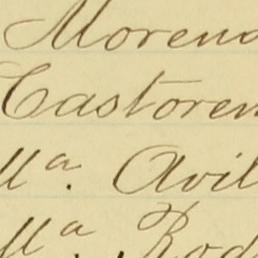 Moreno
Castoren
Ma. Avil
Ma. Rod